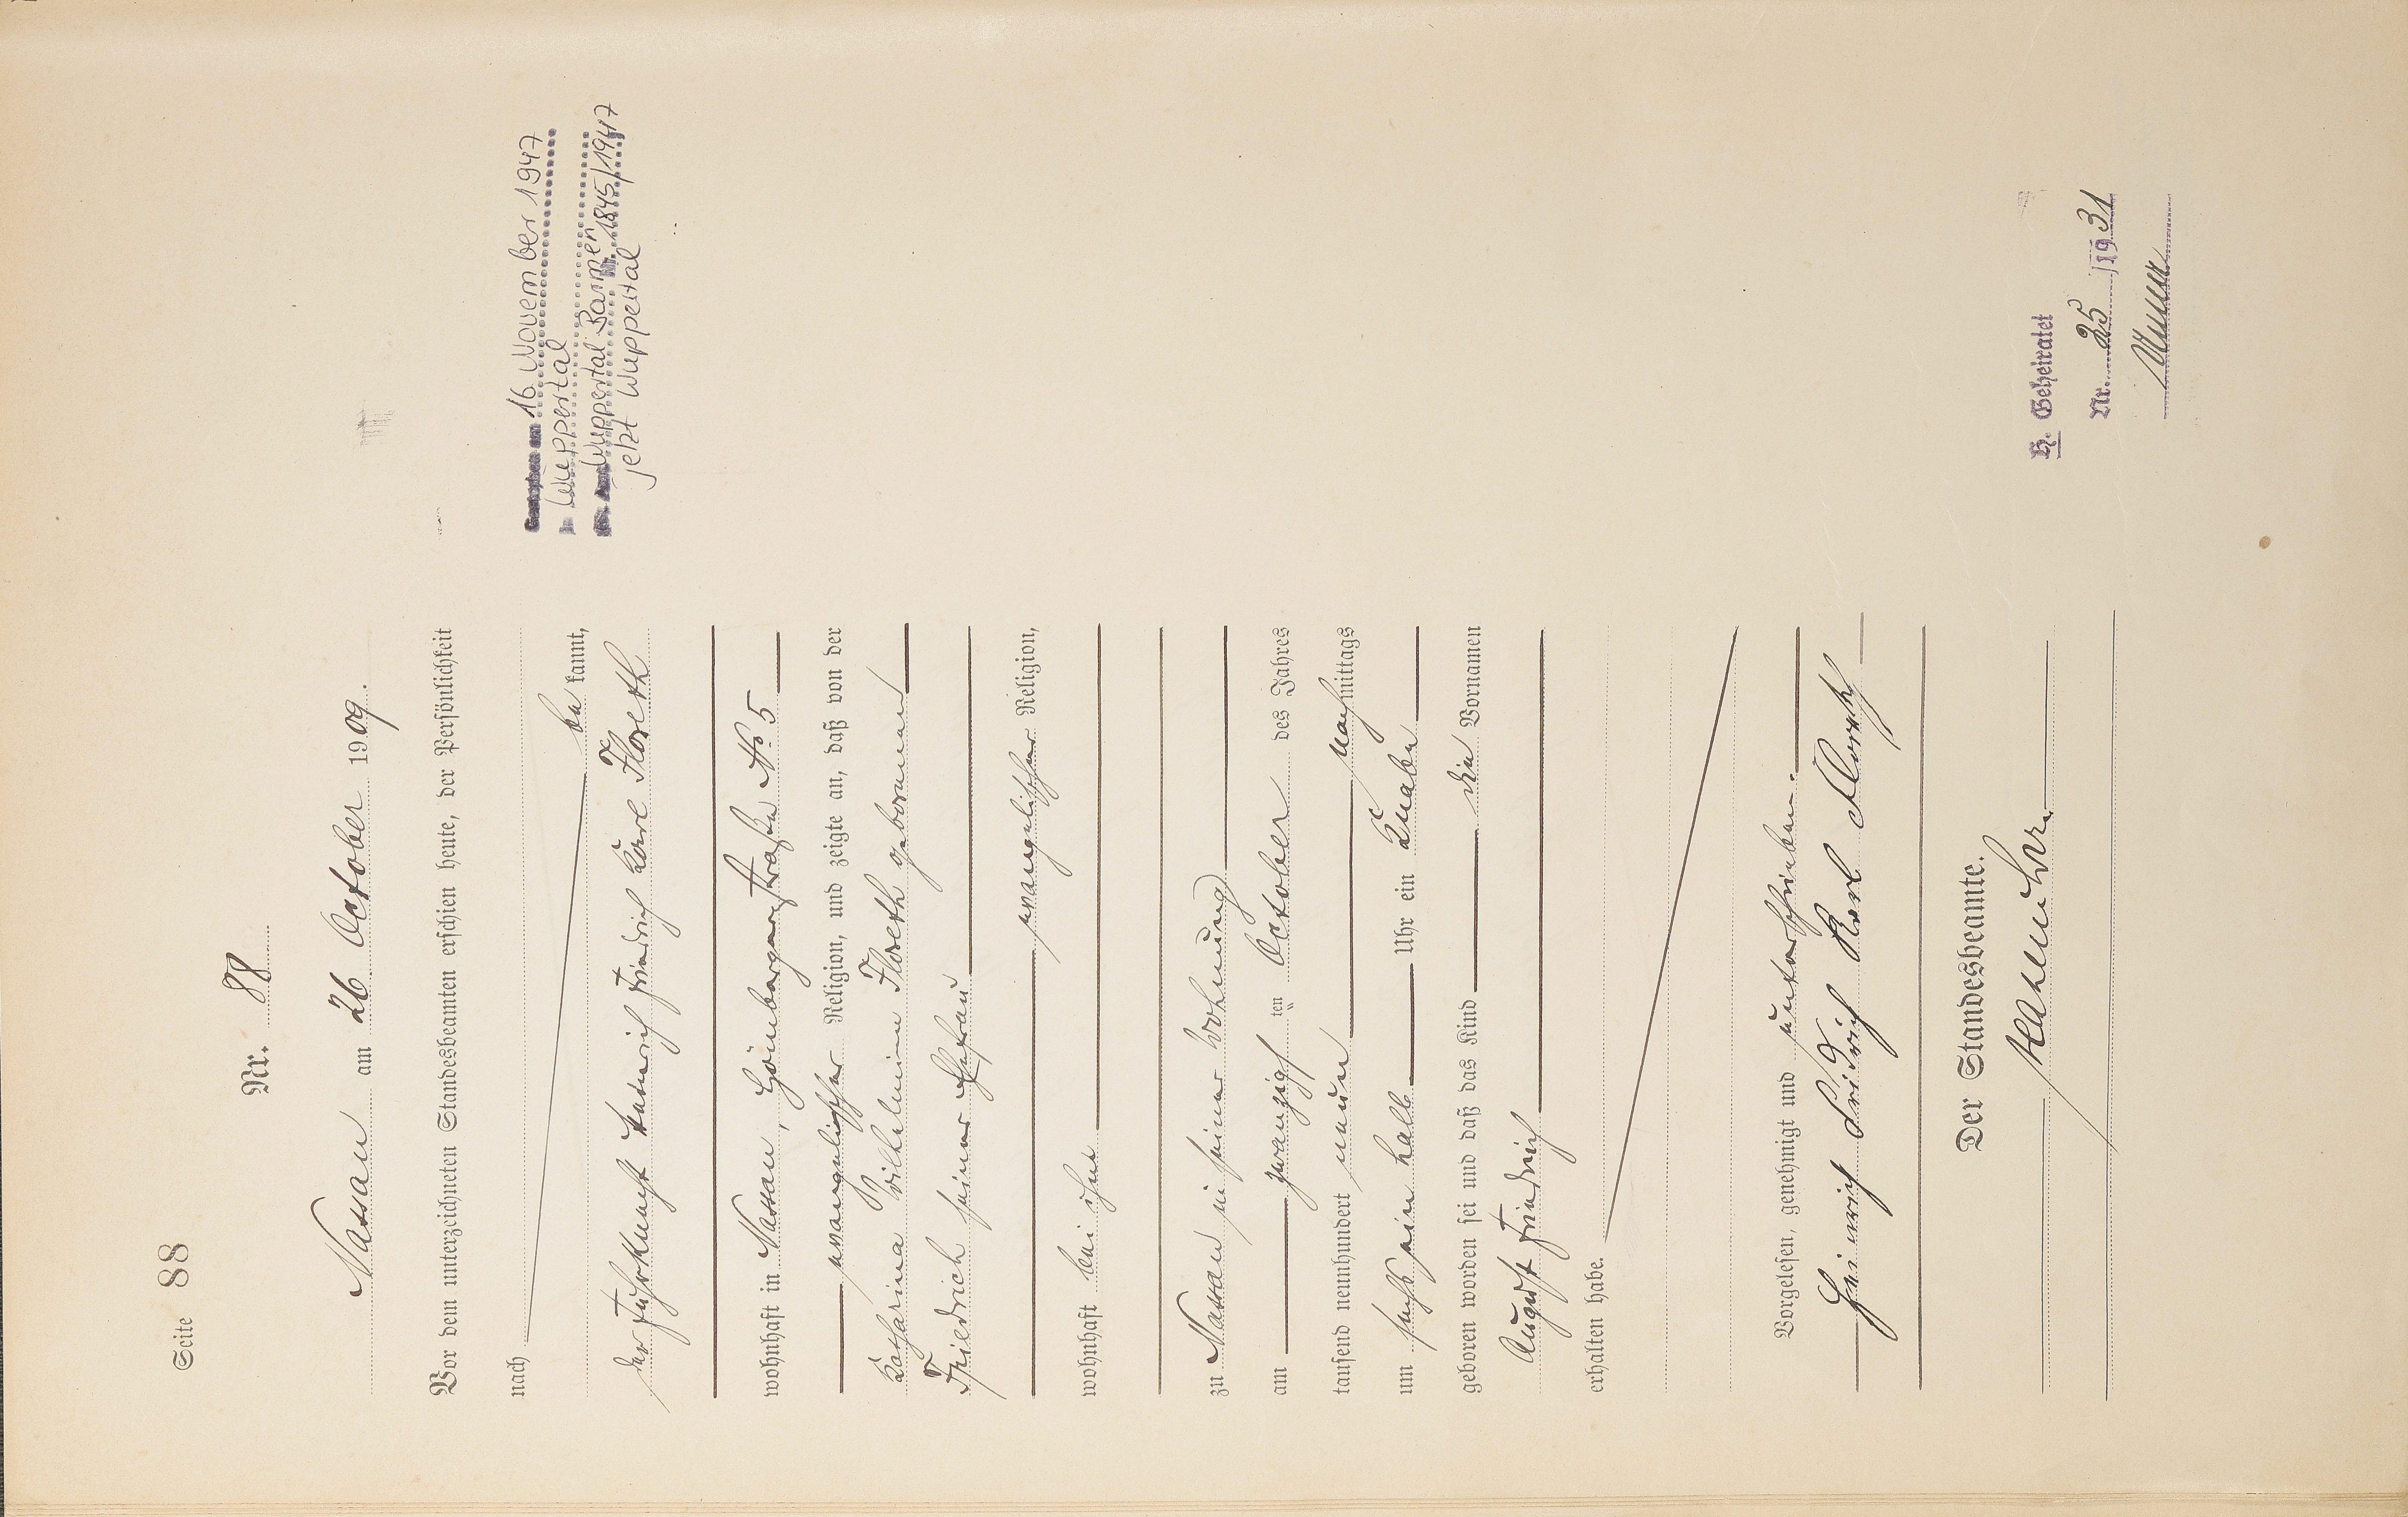 Seite 88
Nr. 88
Nassau am 26 October 1909.
Vor dem unterzeichneten Standesbeamten erschien heute, der Persönlichkeit
nach
be kannt,
der Fuhrknecht Heinrich Friedrich Karl Floreth
wohnhaft in Nassau, Hömbergerstraße No 5
evangelischer Religion, und zeigte an, daß von der
Katharina Wilhelmine Floreth geborenen
Friedrich seiner Ehefrau
evangelischer Religion,
wohnhaft bei ihm
zu Nassau in seiner Wohnung
am zwanzigsten October des Jahres
tausend neunhundert neun nachmittags
um sechs ein halb Uhr ein Knabe
geboren worden sei und daß das Kind die Vornamen
August Friedrich
erhalten habe.
Vorgelesen, genehmigt und unterschrieben.
Heinrich Fridrich Karl Floreth
Der Standesbeamte.
Gestorben am 16. November 1947
in Wuppertal
St. Amt Wuppertal Barmen Nr. 1845/1947
jetzt Wuppertal
H. Geheiratet
Nr. 25/1931